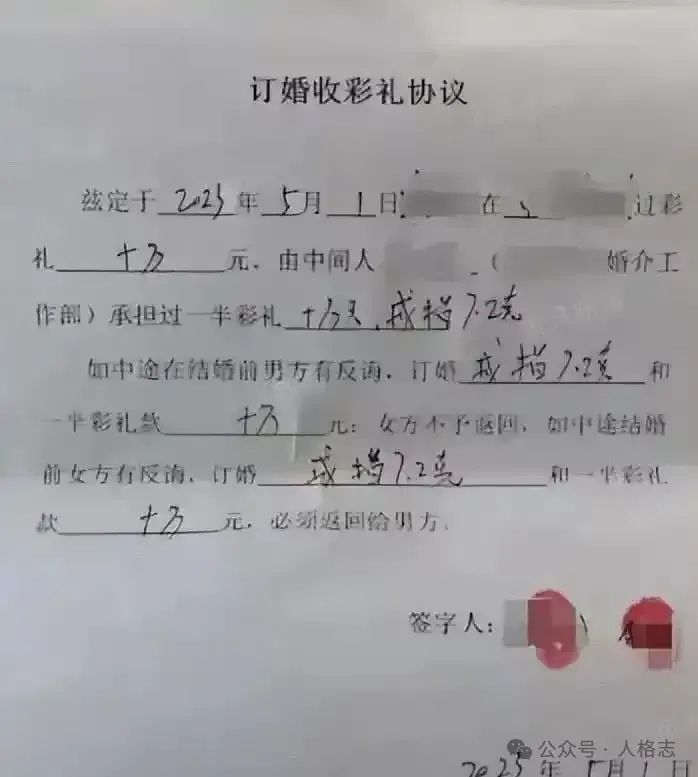 订婚收彩礼协议
兹定于 2023 年 5 月 1 日 在 过彩
礼 十万 元，由中间人 （ 婚介工
作部）承担过一半彩礼 十万元，戒指7.2克
如中途在结婚前男方有反诲，订婚 戒指7.2克 和
一半彩礼款 十万 元；女方不予返回，如中途结婚
前女方有反诲，订婚 戒指7.2克 和一半彩礼
款 十万 元，必须返回给男方。
签字人：
公众号·人格志
2023 年 5 月 1 日